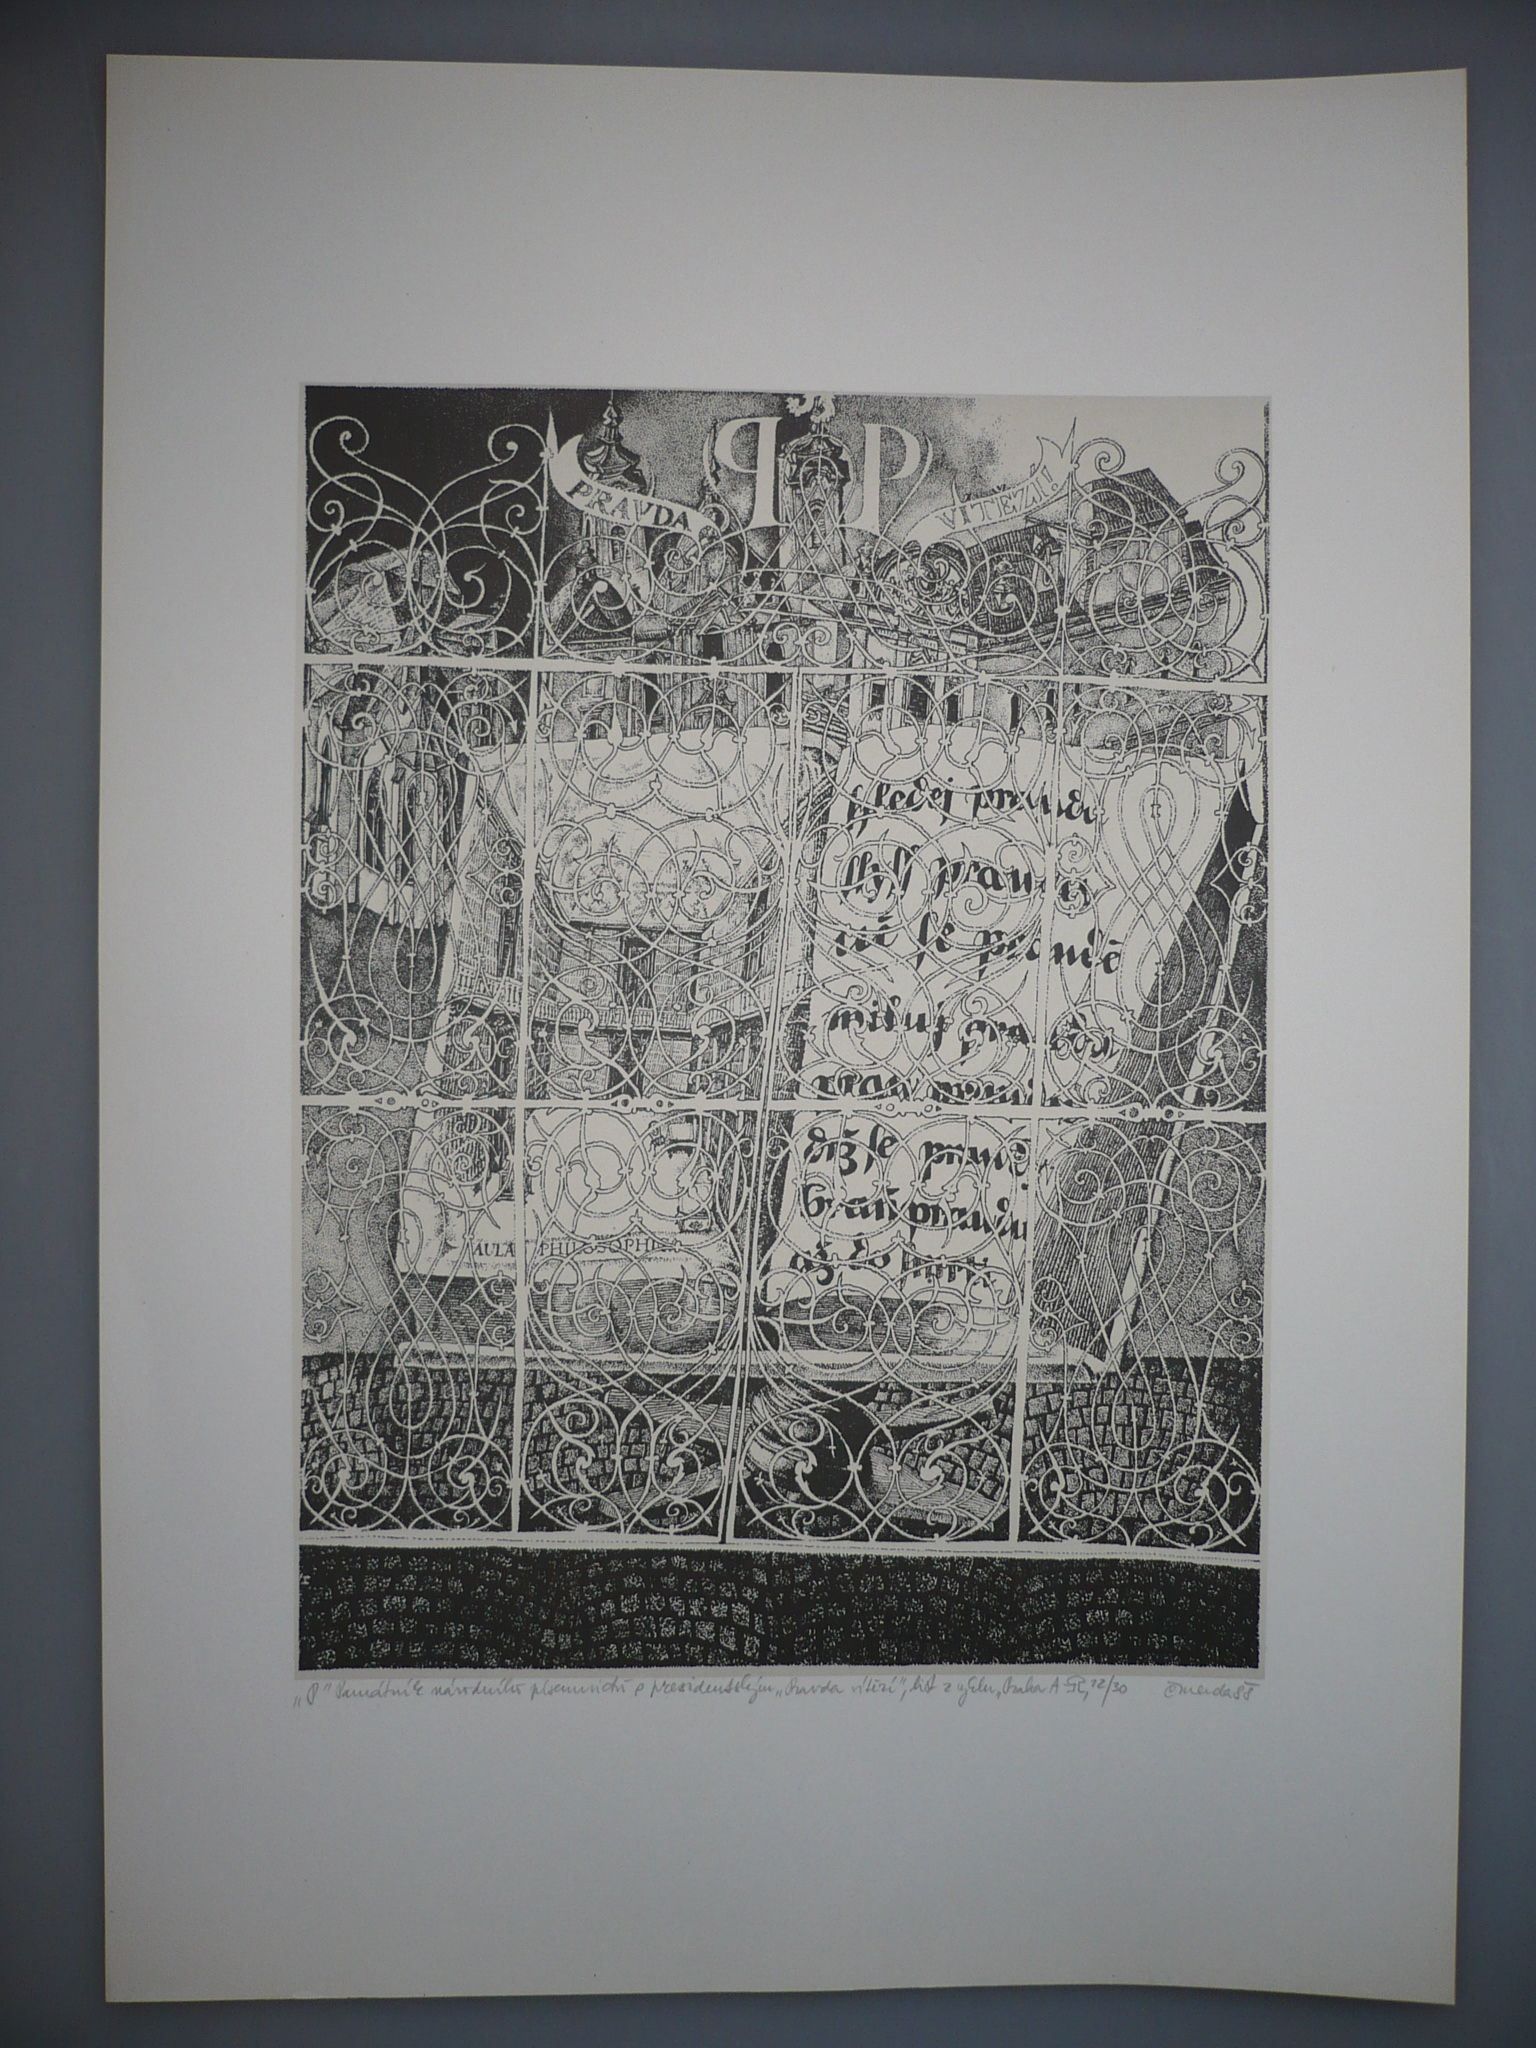 PRAVDA
P P
VÍTĚZÍ!
hledej pravdu
slyš pravdu
uč se pravdě
miluj pravdu
prav pravdu
drž se pravdy
braň pravdu
až do smrti
AULA PHILOSOPHICA
„P" Památník národního písemnictví s presidentským „Pravda vítězí", list z cyklu „Praha A-Z", 12/30